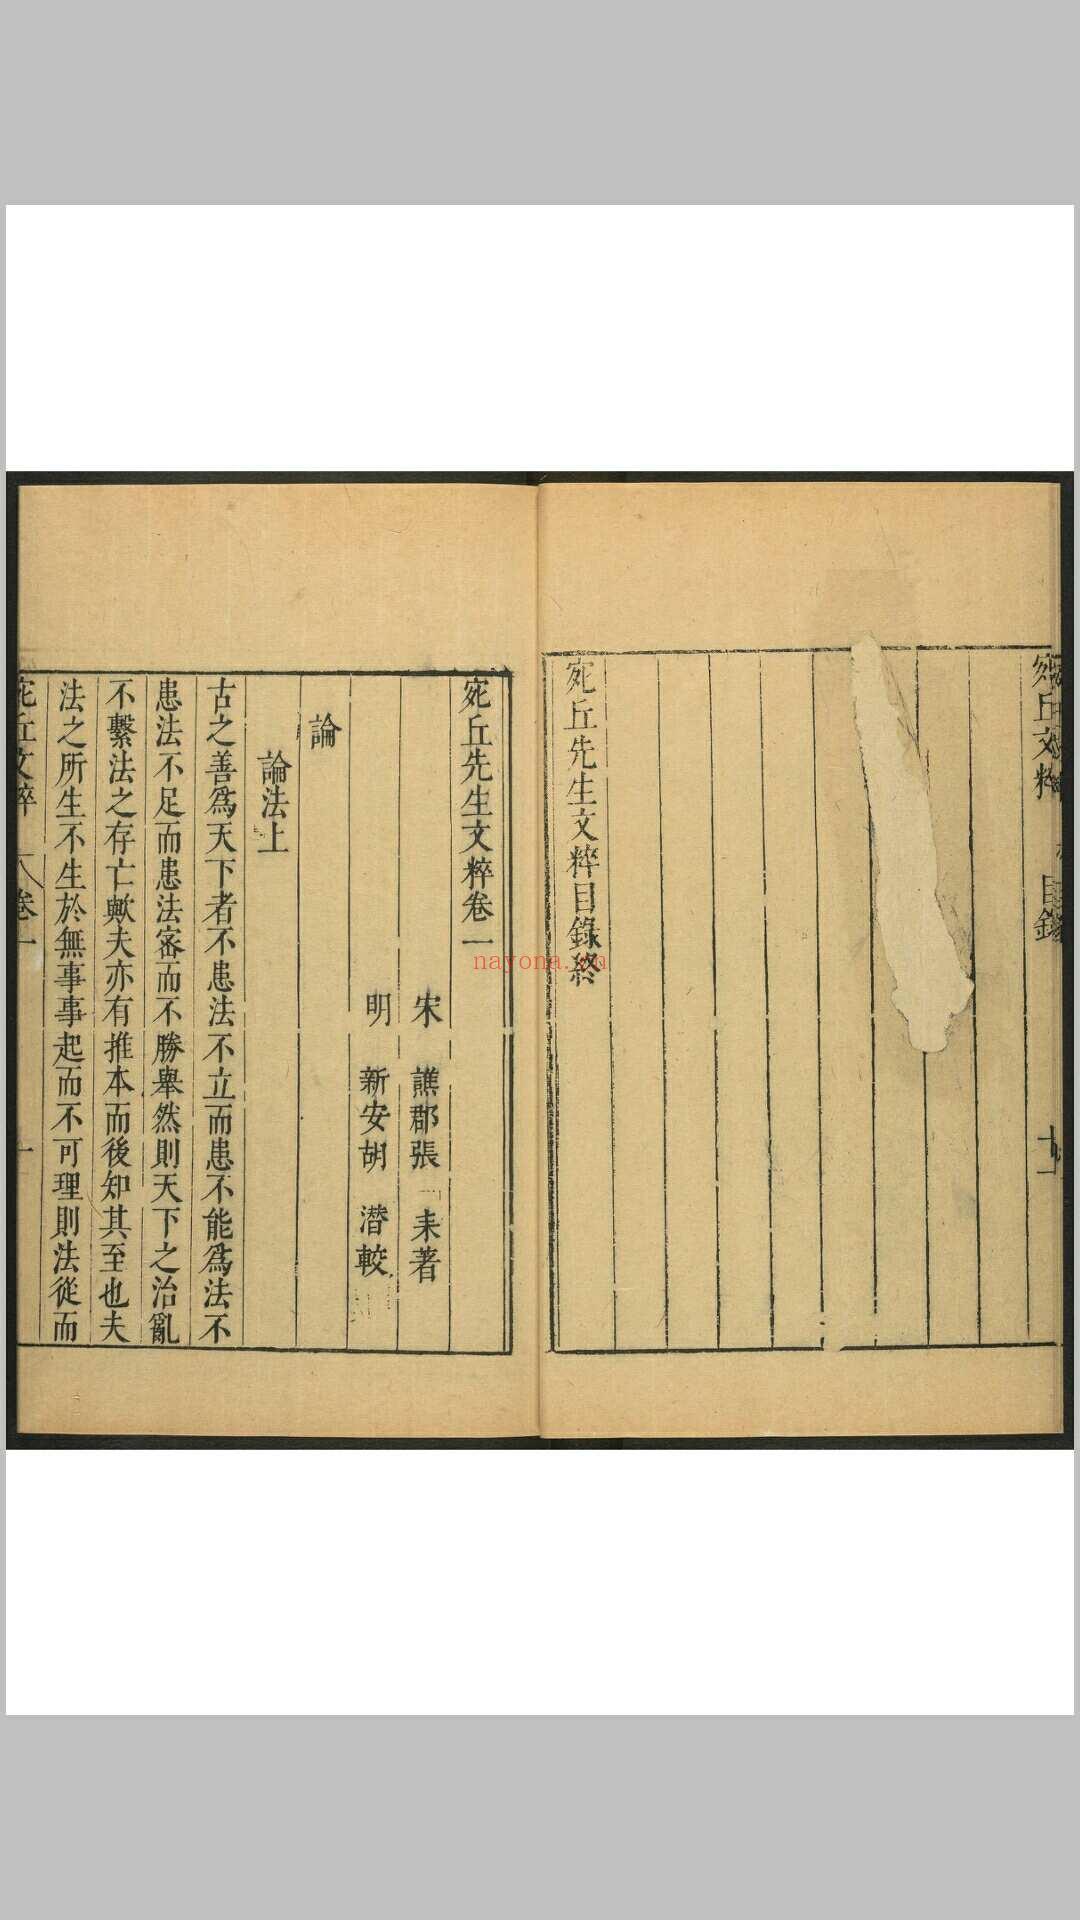 宛丘文粹
目錄
十一
宛丘先生文粹目錄終
宛丘先生文粹卷一
宋　譙郡張　耒著
明　新安胡　潛較
論
論法上
古之善爲天下者不患法不立而患不能爲法不
患法不足而患法密而不勝舉然則天下之治亂
不繫法之存亡歟夫亦有推本而後知其至也夫
法之所生不生於無事事起而不可理則法從而
宛丘文粹
卷一
一
nayona.cn